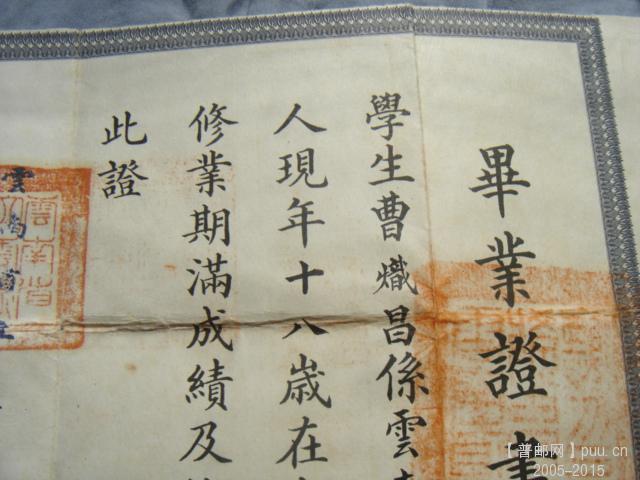 畢業證書
學生曹熾昌係雲南
人現年十八歲在
修業期滿成績及
此證
雲南省立
雲南省
【普邮网】puu.cn
2005-2015